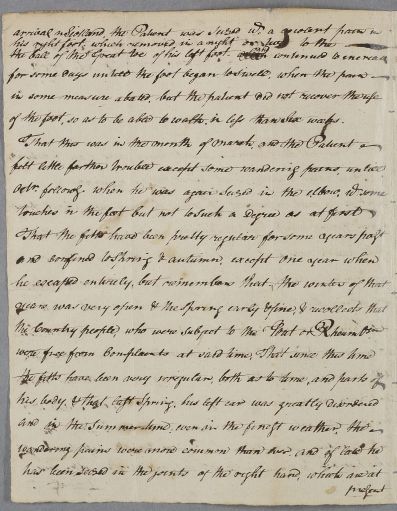 arrival in Scotland, the Patient was Seized wt. a violent pain in
his right foot, which removed in a night or two to the
the ball of the Great toe of his left foot continued to encrease
for some days untill the foot began to Swell, when the pain
in some measure abated, but the patient did not recover the use
of the foot, so as to be able to walk, in less than Six ways.
That this was in the month of March, and the Patient
felt little farther trouble except some wandering pains, untill
Octr. following when he was again Seized in the elbow, wt. some
touches in the foot but not to Such a degree as at first
That the fitts have been pretty regular for some years past
and confined to Spring & autumn, except one year when
he escaped entirely, but remembers that the winter of that
year was very open & the Spring early & fine, & recollects that
the Country people, who were subject to the Gout or Rheumatism
were free from Complaints at said time, That since this time
the fitts have been very irregular, both as to time, and parts of
his body, & that last Spring, his left ear was greatly disordered
and in the Summer time, even in the finest weather the
wandering pains were more common than ever, and of late he
has been seized in the joints of the right hand, which are at
present